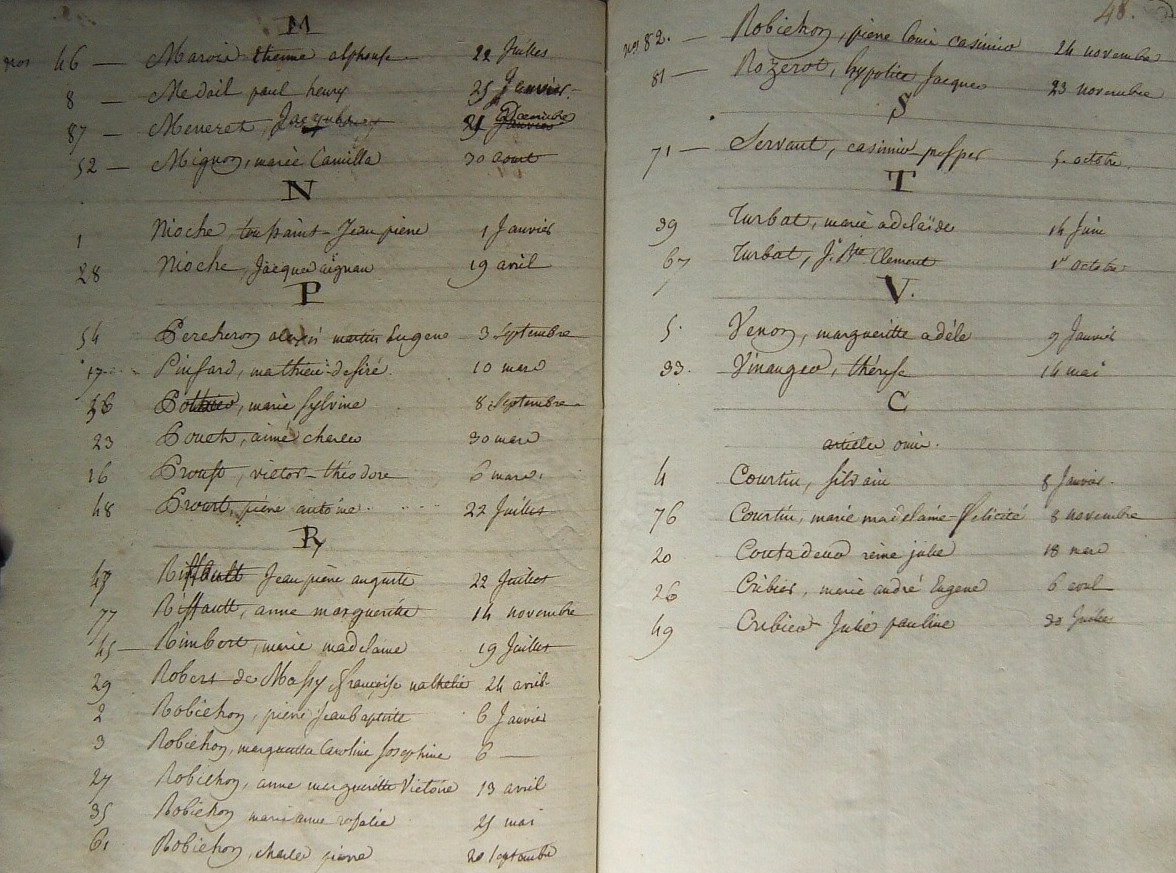 M
nos 46 — Marois etienne alphonse 22 Juillet
8 — Medail paul henry 25 Janvier
87 — Meneret, Jacques 21 Decembre
52 — Mignon, marie Camilla 30 aout
N
1 Nioche, toussaint Jean pierre 1 Janvier
28 Nioche, Jacques aignan 19 avril
P
54 Percheron alexis martin Eugene 3 Septembre
17 Pinsard, mathieu desiré 10 mars
marie Sylvine 8 Septembre
23 Pouet, aimé charles 30 mars
16 Proust, victor théodore 6 mars
48 Prout, pierre antoine 22 Juillet
R
47 Riffault Jean pierre auguste 22 Juillet
77 Riffault, anne marguerite 14 novembre
45 — Rimbert, marie madelaine 19 Juillet
29 Robert de Massy, françoise nathelie 24 avril
2 Robichon, pierre Jean baptiste 6 Janvier
3 Robichon, margueritte Caroline Josephine 6 —
27 Robichon, anne margueritte Victoire 13 avril
35 Robichon marie anne rosalie 25 mai
61 Robichon, charles pierre 20 septembre
48.
nos 82. — Robichon, pierre louis casimir 24 novembre
81 — Rozerot, hypolite Jacques 23 novembre
S
71 — Servant, casimir prosper 5 octobre
T
39 Turbat, marie adelaïde 14 Juin
67 Turbat, J. Bte Clement 1er octobre
V.
5. Venon, margueritte adéle 9 Janvier
33. Vinauger, thérese 14 mai
C
articles omis.
4 Courtin, silvain 8 Janvier
76 Courtin, marie madelaine félicité 8 novembre
20 Coutadeur reine julie 18 mars
26 Cribier, marie andré Eugene 6 avril
49 Cribier Julie pauline Juillet